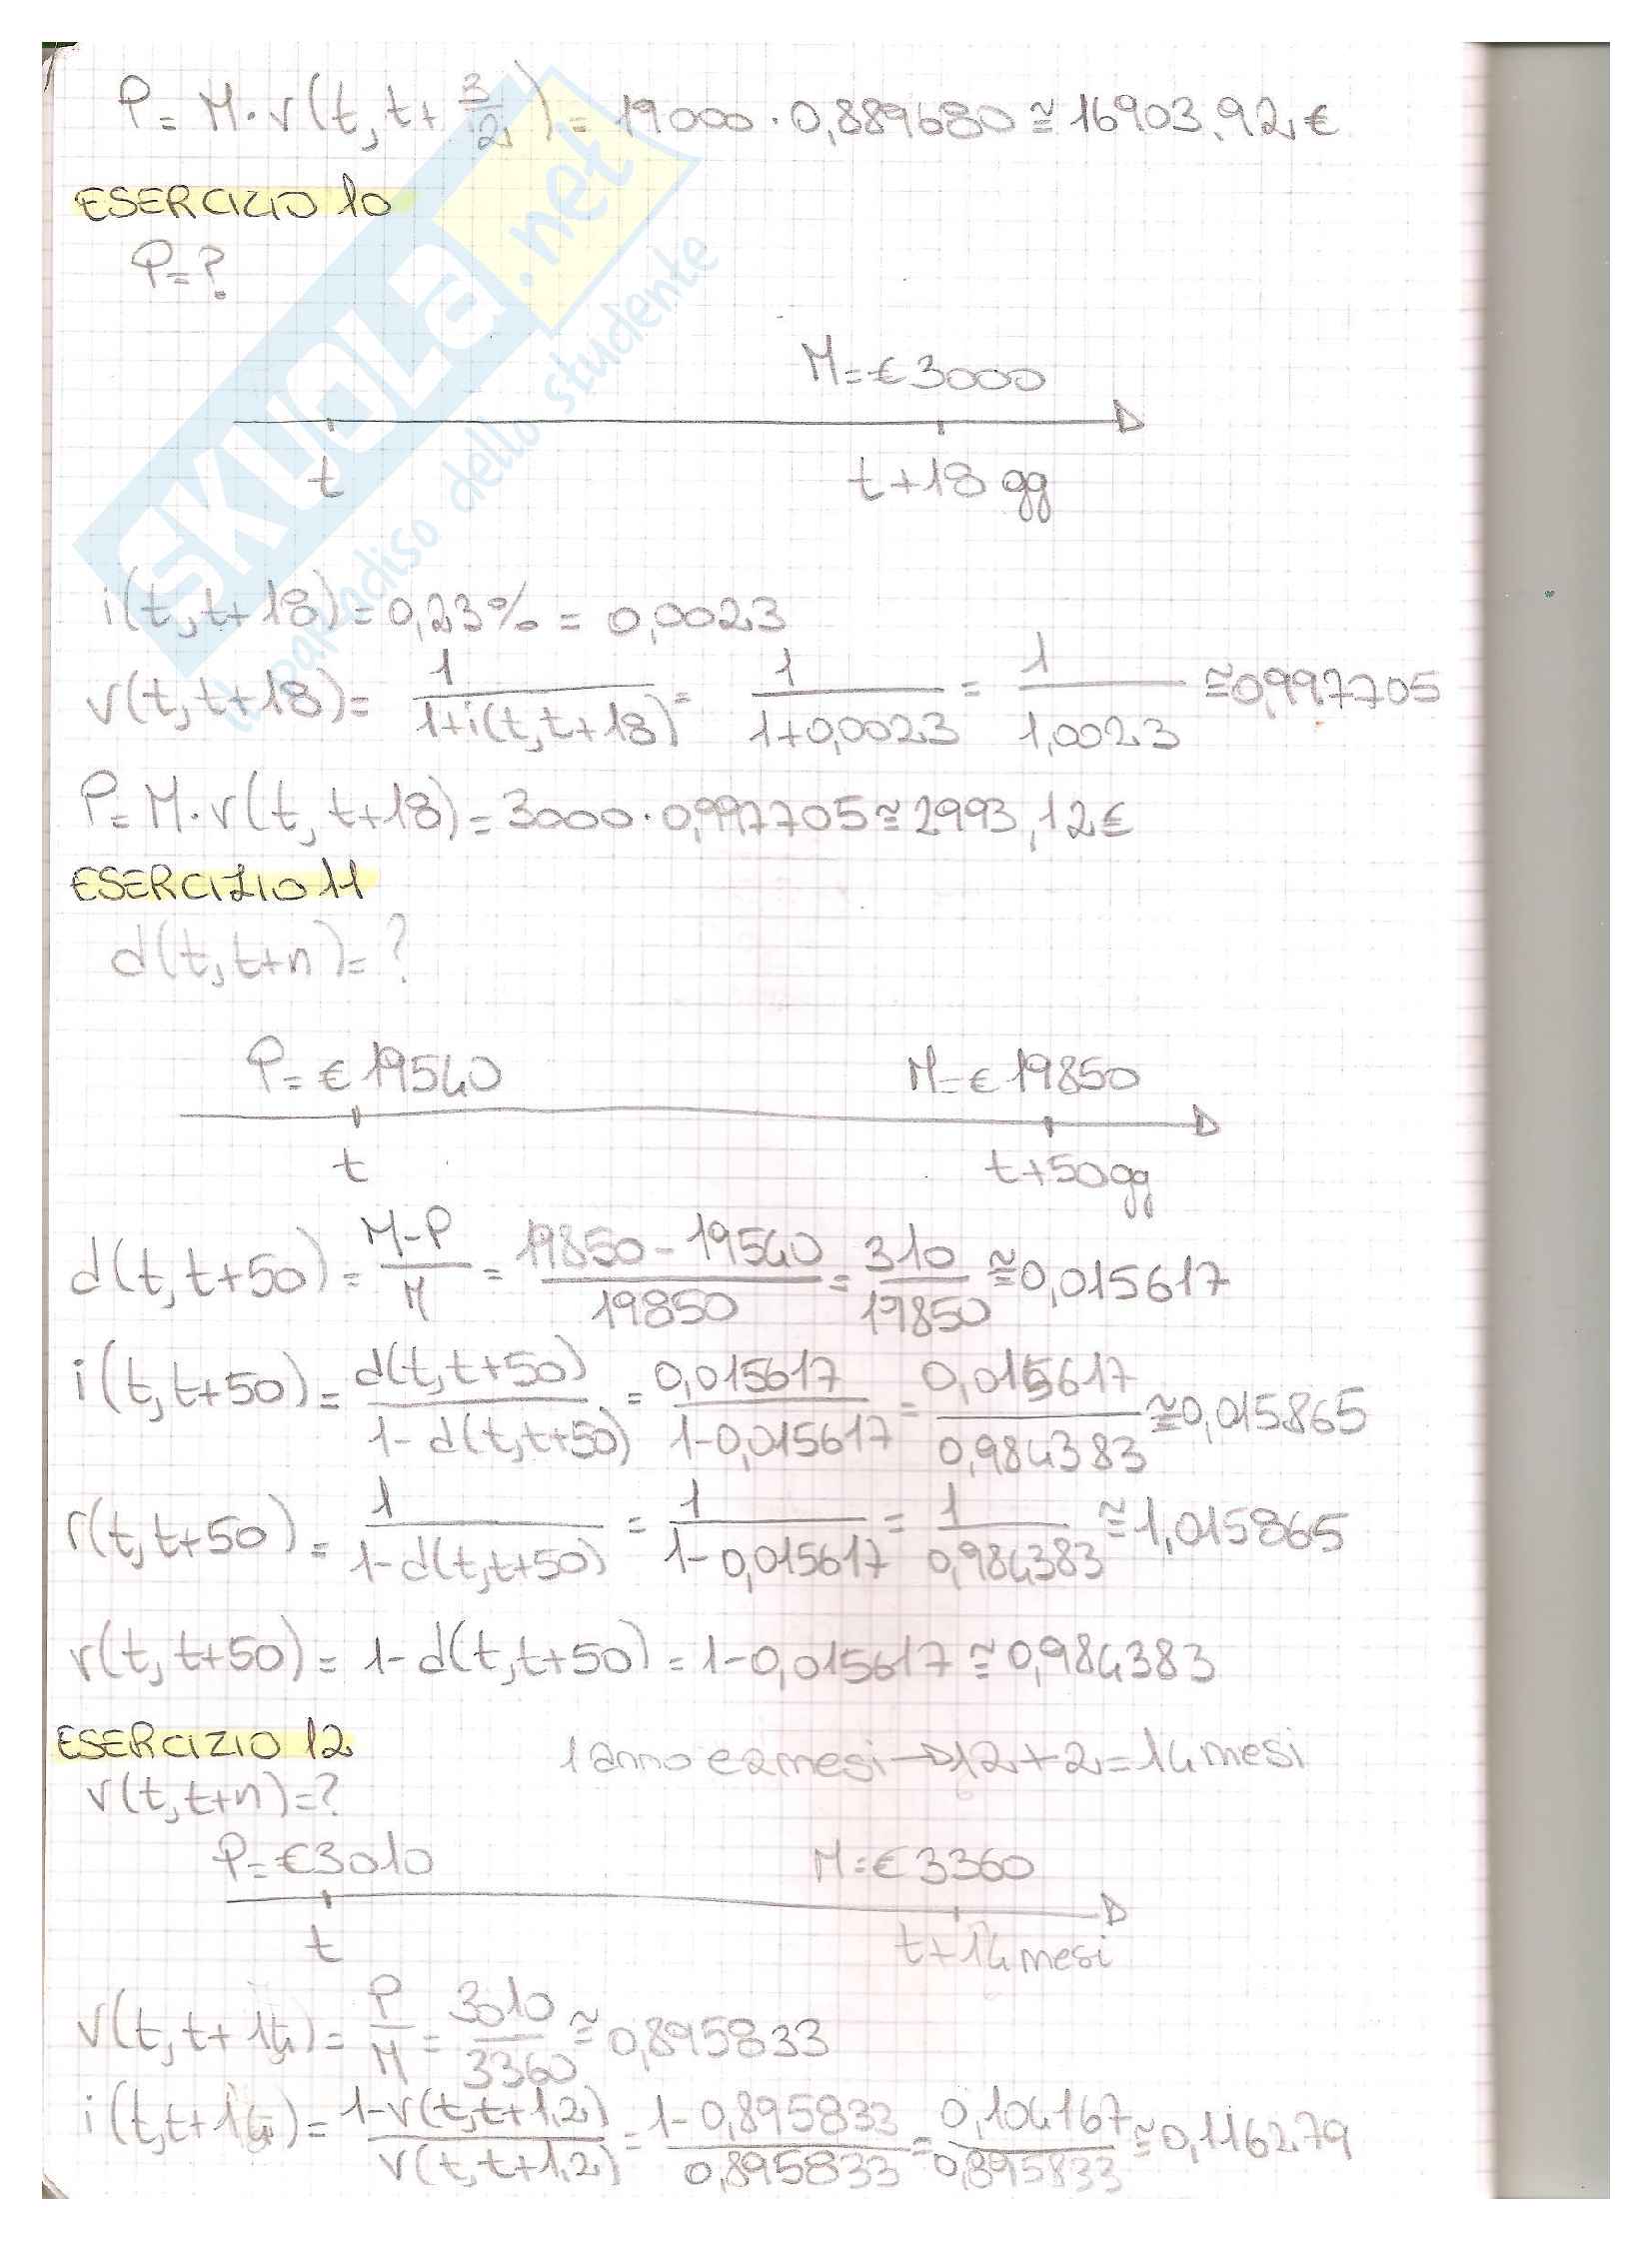 P = M · v(t, t + 3/2) = 19000 · 0,889680 ≅ 16903,92 €
ESERCIZIO 10
P = ?
M = € 3000
t t + 18 gg
i(t, t+18) = 0,23% = 0,0023
v(t, t+18) = 1/(1+i(t, t+18)) = 1/(1+0,0023) = 1/1,0023 ≅ 0,997705
P = M · v(t, t+18) = 3000 · 0,997705 ≅ 2993,12 €
ESERCIZIO 11
d(t, t+n) = ?
P = € 19540 M = € 19850
t t+50gg
d(t, t+50) = (M-P)/M = (19850 - 19540)/19850 = 310/19850 ≅ 0,015617
i(t, t+50) = d(t, t+50)/(1-d(t, t+50)) = 0,015617/(1-0,015617) = 0,015617/0,984383 ≅ 0,015865
r(t, t+50) = 1/(1-d(t, t+50)) = 1/(1-0,015617) = 1/0,984383 ≅ 1,015865
v(t, t+50) = 1-d(t, t+50) = 1-0,015617 ≅ 0,984383
ESERCIZIO 12 1 anno e 2 mesi → 12 + 2 = 14 mesi
v(t, t+n) = ?
P = € 3010 M = € 3360
t t + 14 mesi
v(t, t+14) = P/M = 3010/3360 ≅ 0,895833
i(t, t+14) = (1-v(t, t+1,2))/v(t, t+1,2) = (1-0,895833)/0,895833 = 0,104167/0,895833 ≅ 0,116279
SKUOLA.net
il paradiso dello studente